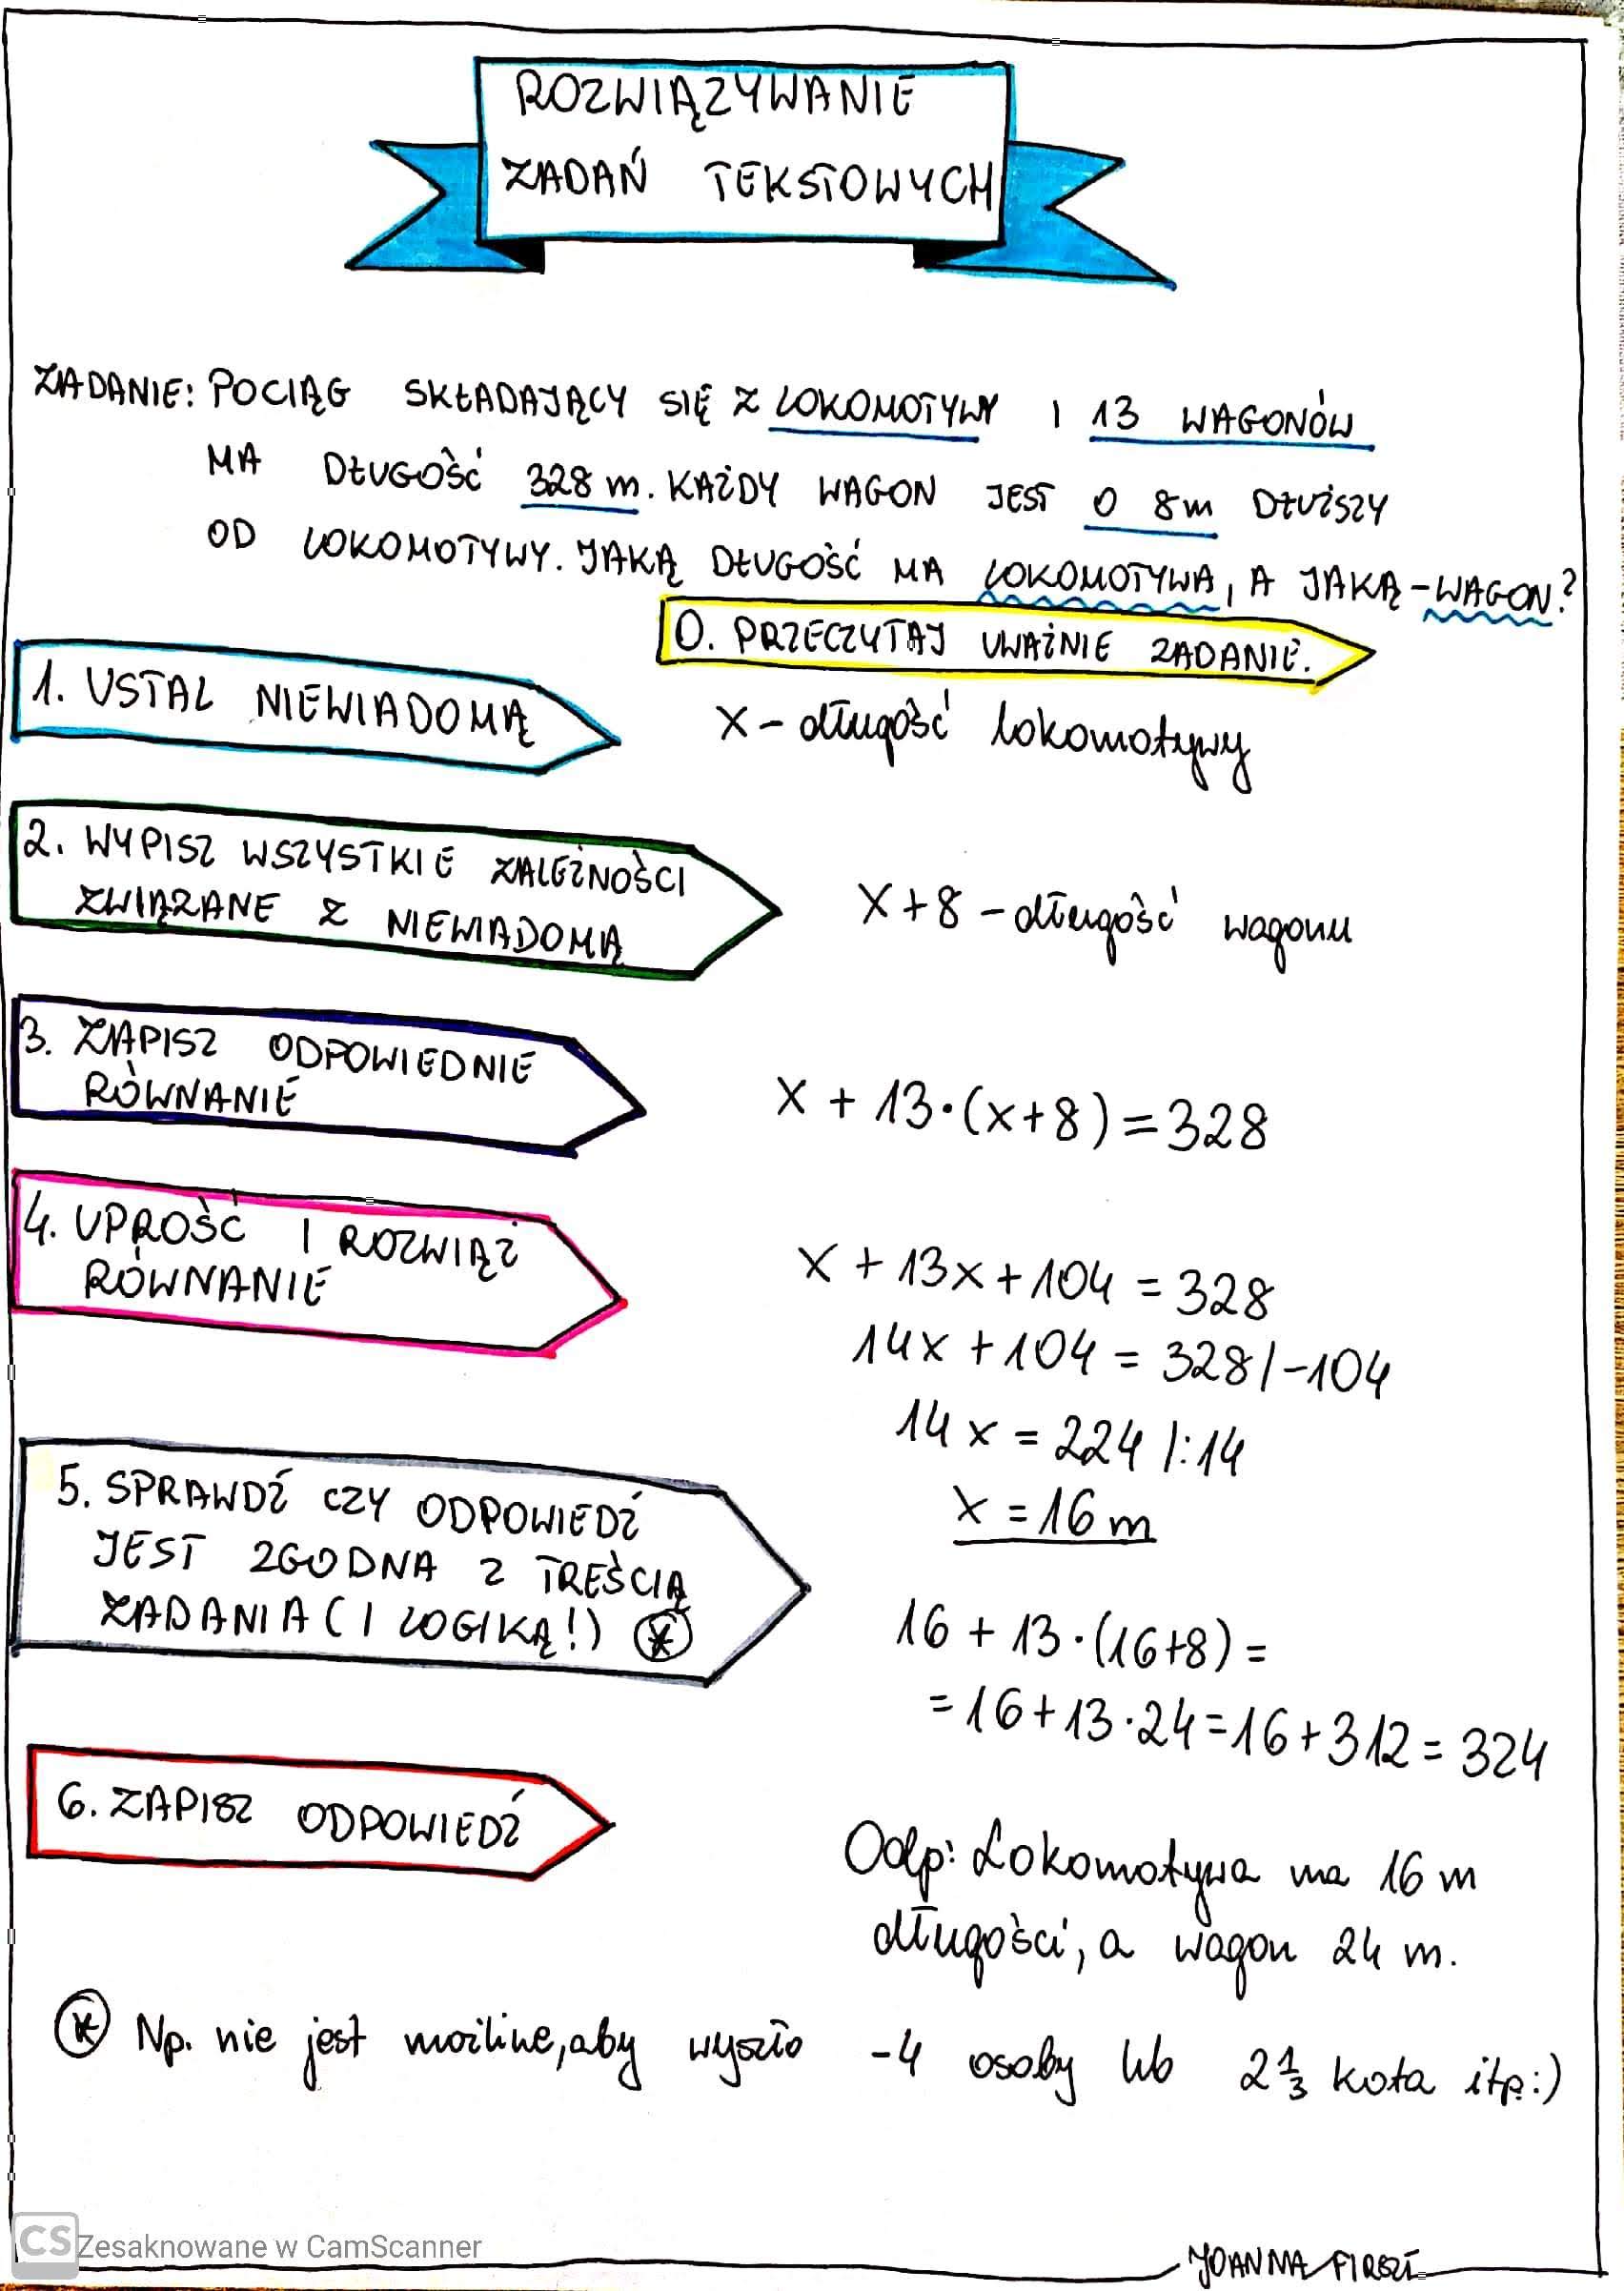 ROZWIĄZYWANIE
ZADAŃ TEKSTOWYCH
ZADANIE: POCIĄG SKŁADAJĄCY SIĘ Z LOKOMOTYWY I 13 WAGONÓW
MA DŁUGOŚĆ 328 m. KAŻDY WAGON JEST O 8m DŁUŻSZY
OD LOKOMOTYWY. JAKĄ DŁUGOŚĆ MA LOKOMOTYWA, A JAKĄ - WAGON?
0. PRZECZYTAJ UWAŻNIE ZADANIE.
1. USTAL NIEWIADOMĄ
x - długość lokomotywy
2. WYPISZ WSZYSTKIE ZALEŻNOŚCI
ZWIĄZANE Z NIEWIADOMĄ
x + 8 - długość wagonu
3. ZAPISZ ODPOWIEDNIE
RÓWNANIE
x + 13·(x+8) = 328
4. UPROŚĆ I ROZWIĄŻ
RÓWNANIE
x + 13x + 104 = 328
14x + 104 = 328 /-104
14x = 224 /:14
x = 16 m
5. SPRAWDŹ CZY ODPOWIEDŹ
JEST ZGODNA Z TREŚCIĄ
ZADANIA (I LOGIKĄ!) *
16 + 13·(16+8) =
= 16 + 13·24 = 16 + 312 = 324
6. ZAPISZ ODPOWIEDŹ
Odp: Lokomotywa ma 16 m
długości, a wagon 24 m.
* Np. nie jest możliwe, aby wyszło -4 osoby lub 2 1/3 kota itp :)
CS Zesaknowane w CamScanner
JOANNA FIRSZT